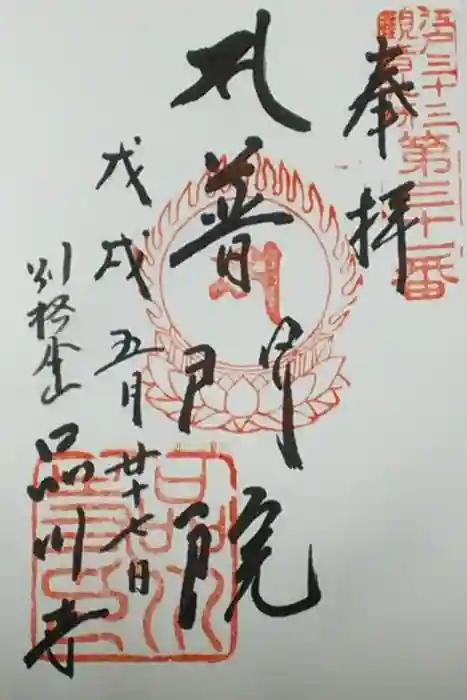 江戸三十三
観音札所
第三十一番
奉拝
普門院
戊戌五月廿十七日
別格本山
品川寺